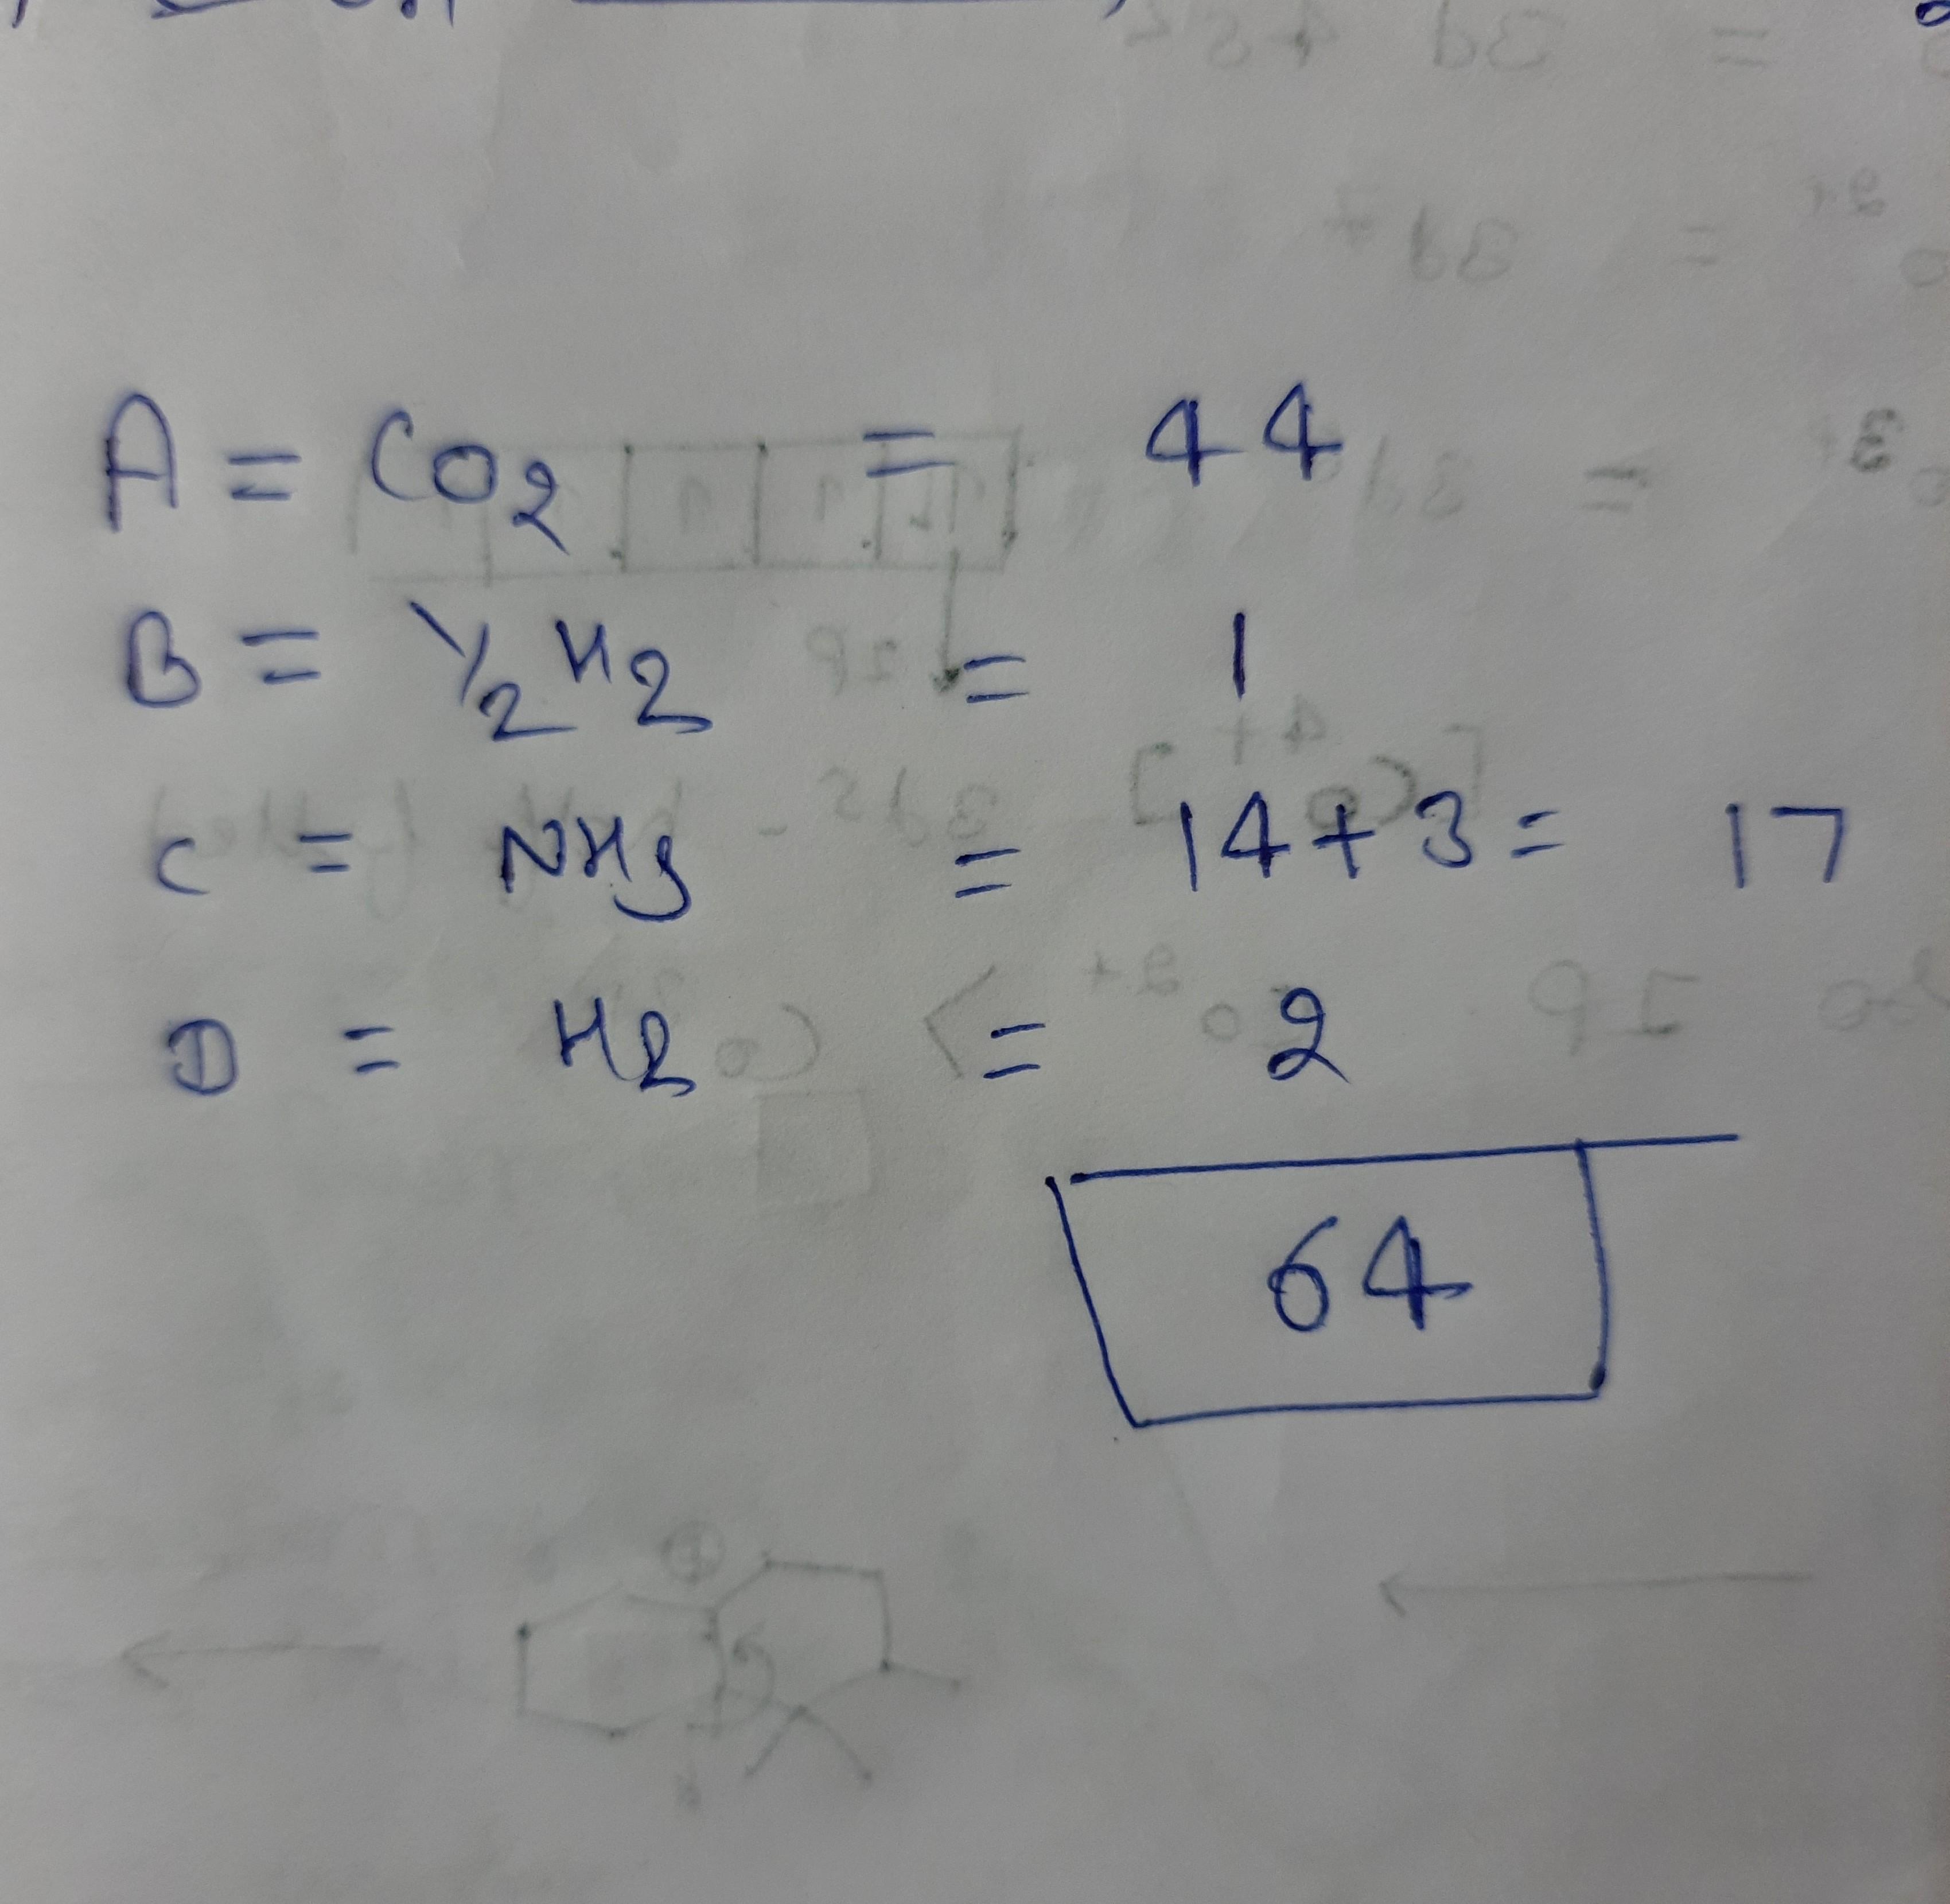 A = CO2 = 44
B = 1/2 H2 = 1
C = NH3 = 14+3 = 17
D = H2 = 2
64